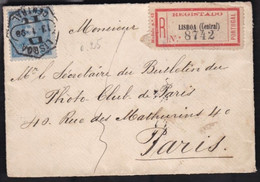 REGISTADO
R
LISBOA (Central)
PORTUGAL
N.º 8742
Monsieur
Mr le Secrétaire du Bulletin du
Photo Club de Paris
40. Rue des Mathurins 40
Paris.